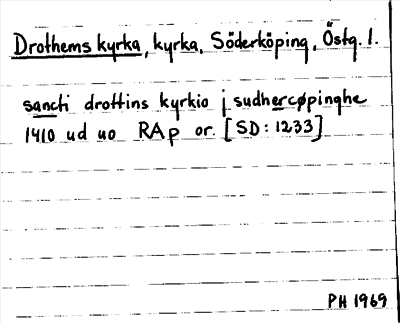 Drothems kyrka, kyrka, Söderköping, Östg. l.
sancti drottins kyrkio j sudhercøpinghe
1410 ud uo RAp or. [SD: 1233]
PH 1969